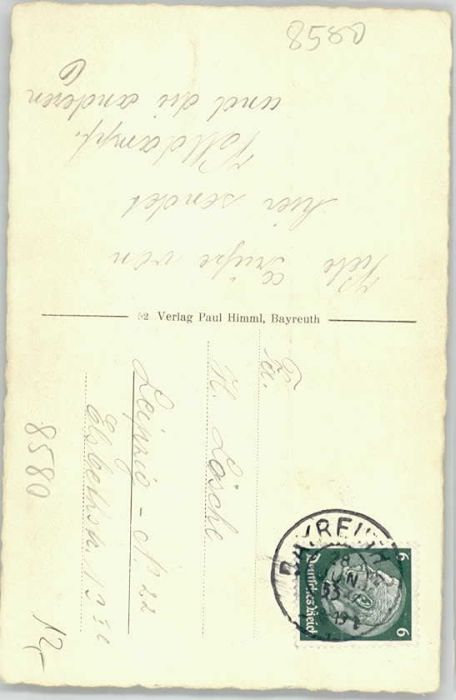 8580
Viele Grüße von
hier sendet
Volldampf.
und die anderen
6
52 Verlag Paul Himml, Bayreuth
Frl.
H. Lösche
Leipzig - N 22
Elsbethstr.
8580
12,-
BAYREUTH
18
JUN
Deutsches Reich
6
6